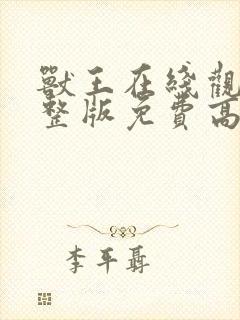 獸王在綫觀
整版免費高
李平聶